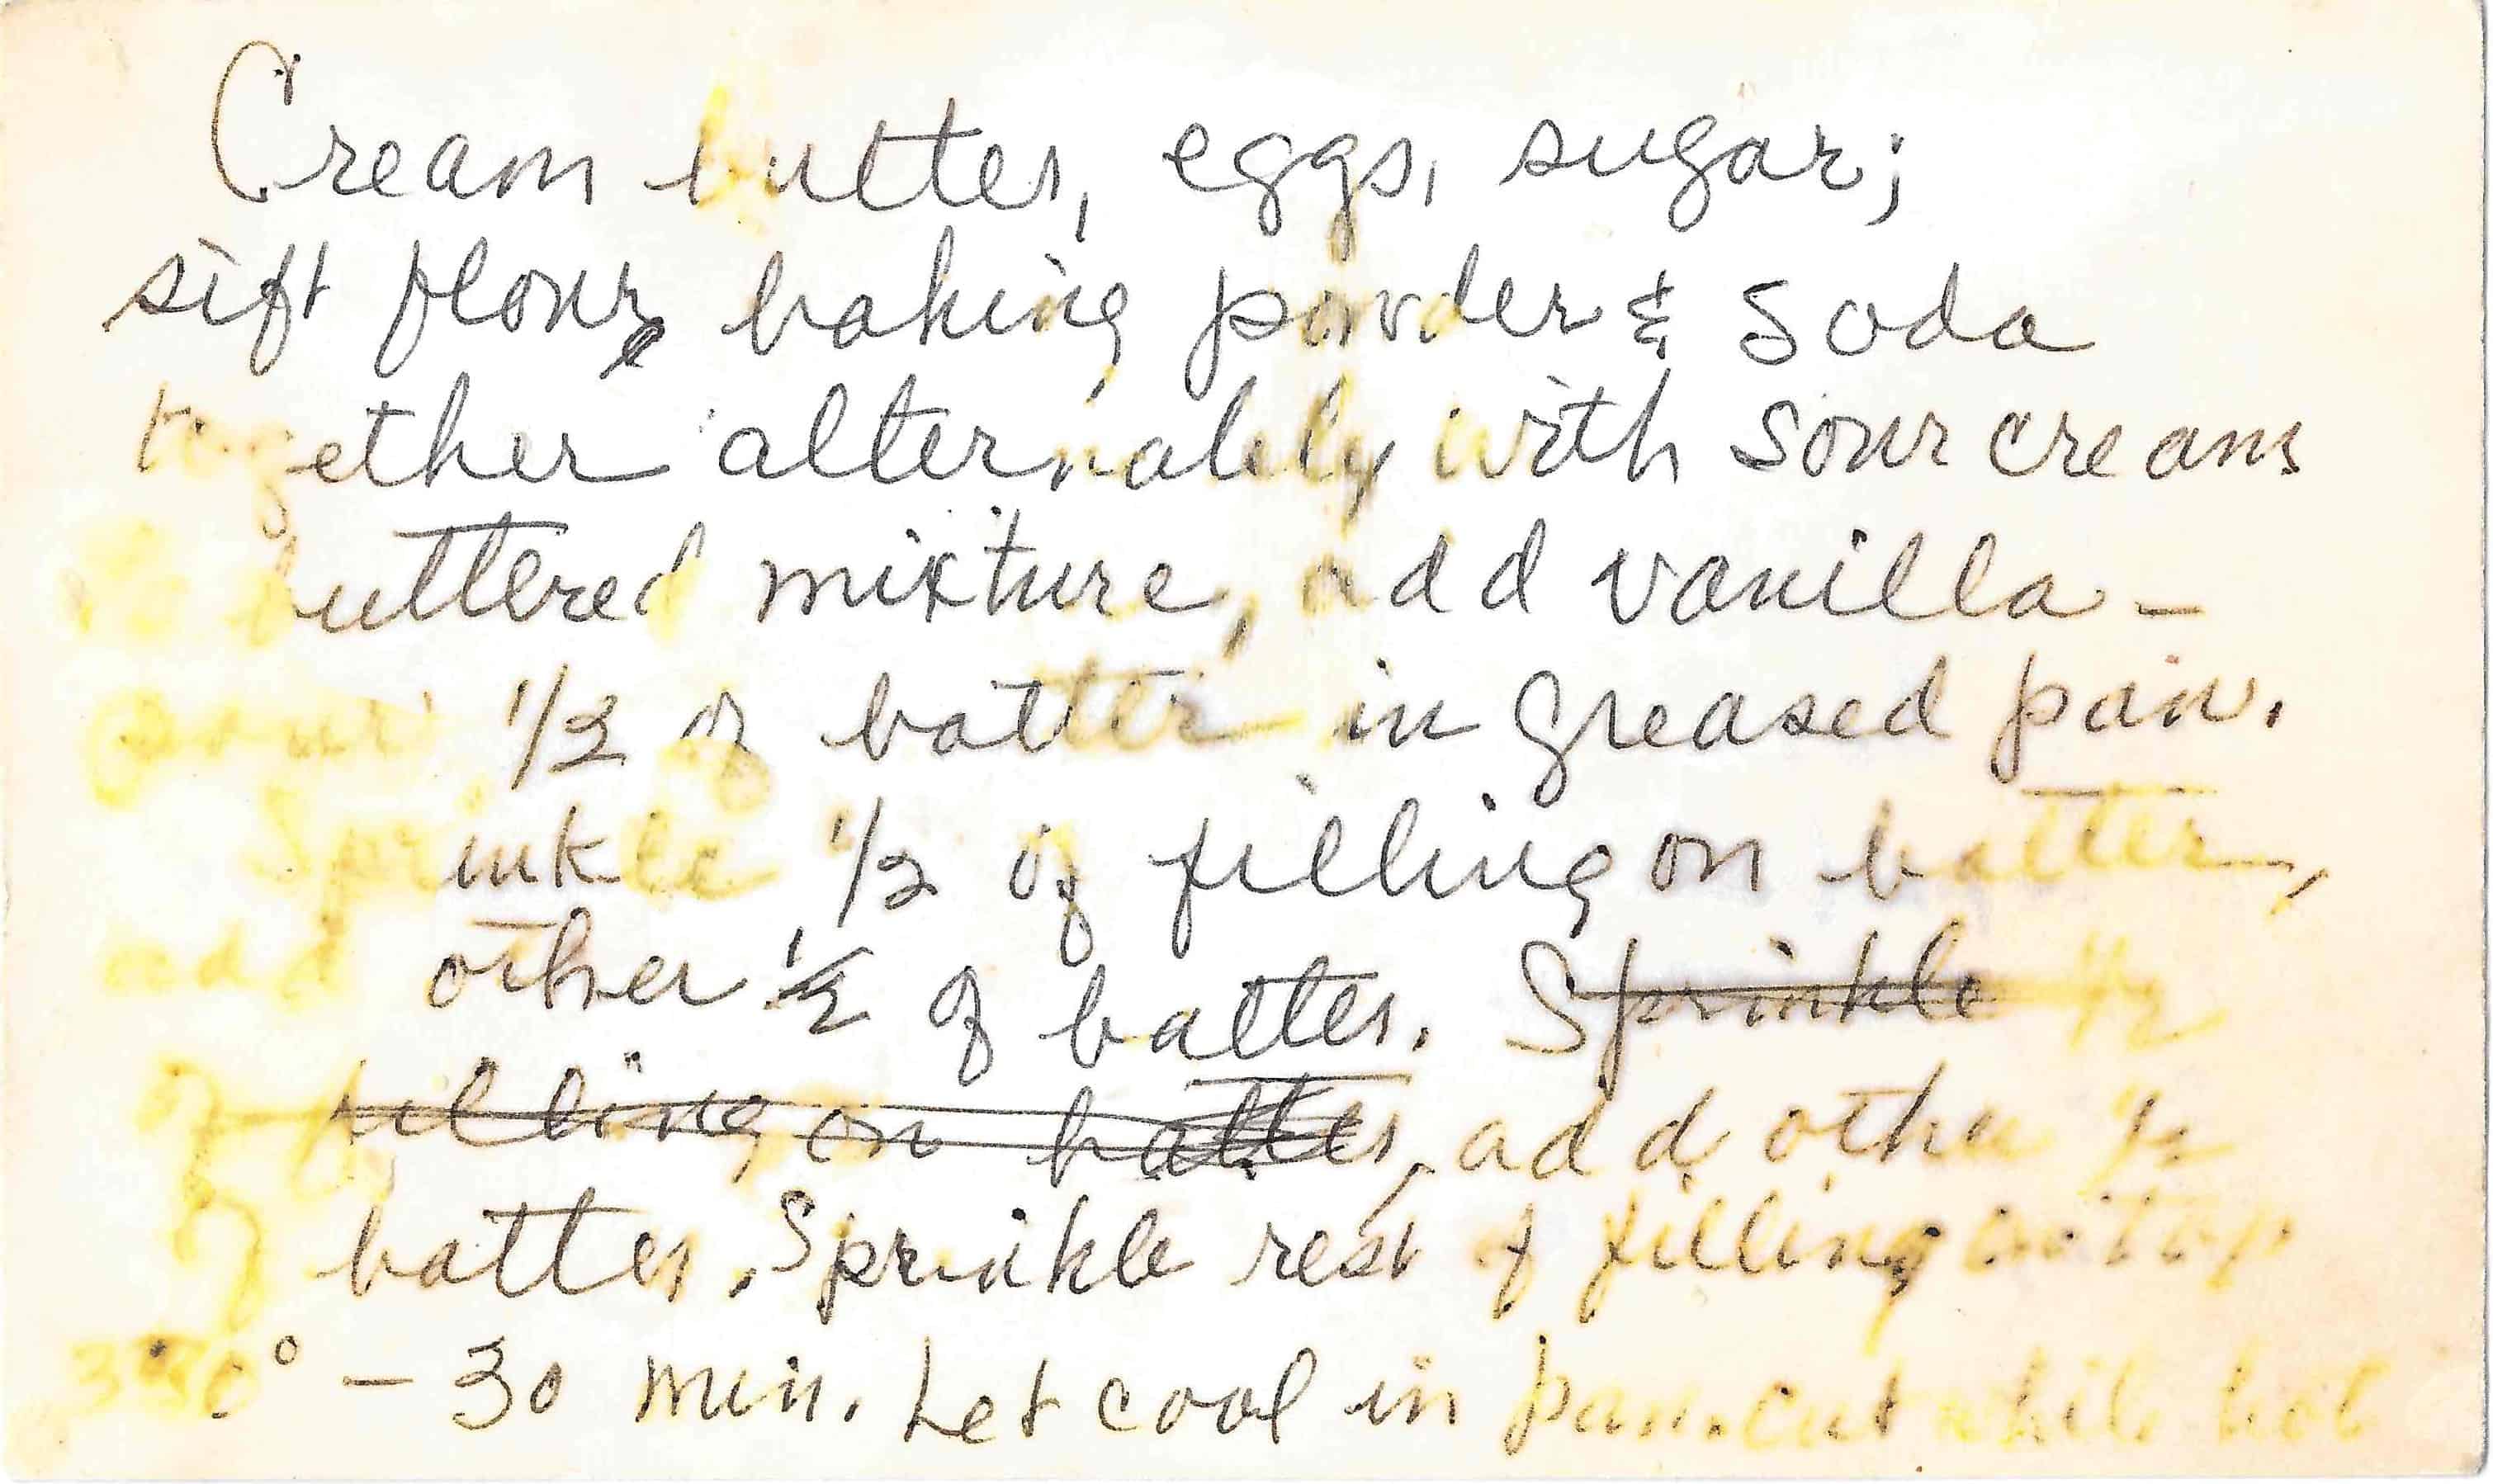 Cream butter, eggs, sugar;
sift flour, baking powder & soda
together alternately with sour cream
to buttered mixture, add vanilla –
pour 1/2 of batter in greased pan.
Sprinkle 1/2 of filling on batter,
add other 1/2 of batter. Sprinkle 1/2
of filling on batter, add other 1/2
of batter. Sprinkle rest of filling on top
350° – 30 min. Let cool in pan. cut while hot